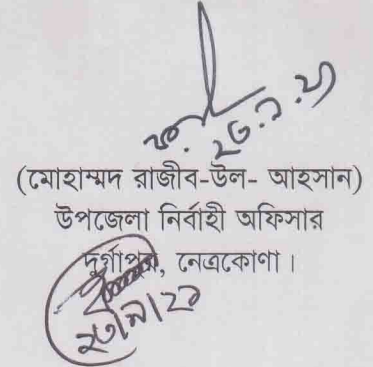 ২৩.৯.২১
(মোহাম্মদ রাজীব-উল- আহসান)
উপজেলা নির্বাহী অফিসার
দুর্গাপুর, নেত্রকোণা।